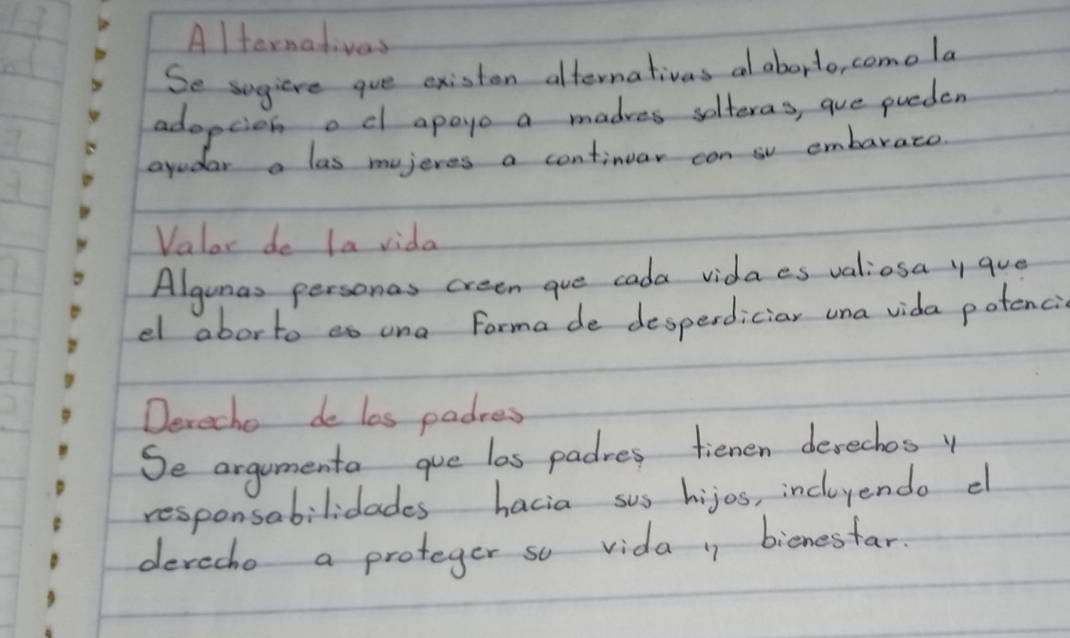 Alternativas
Se sugiere que existen alternativas al aborto, como la
adopcion o el apoyo a madres solteras, que pueden
ayudar a las mujeres a continuar con su embarazo.
Valor de la vida
Algunas personas creen que cada vida es valiosa y que
el aborto es una forma de desperdiciar una vida potenci
Derecho de los padres
Se argumenta que los padres tienen derechos y
responsabilidades hacia sus hijos, incluyendo el
derecho a proteger su vida y bienestar.